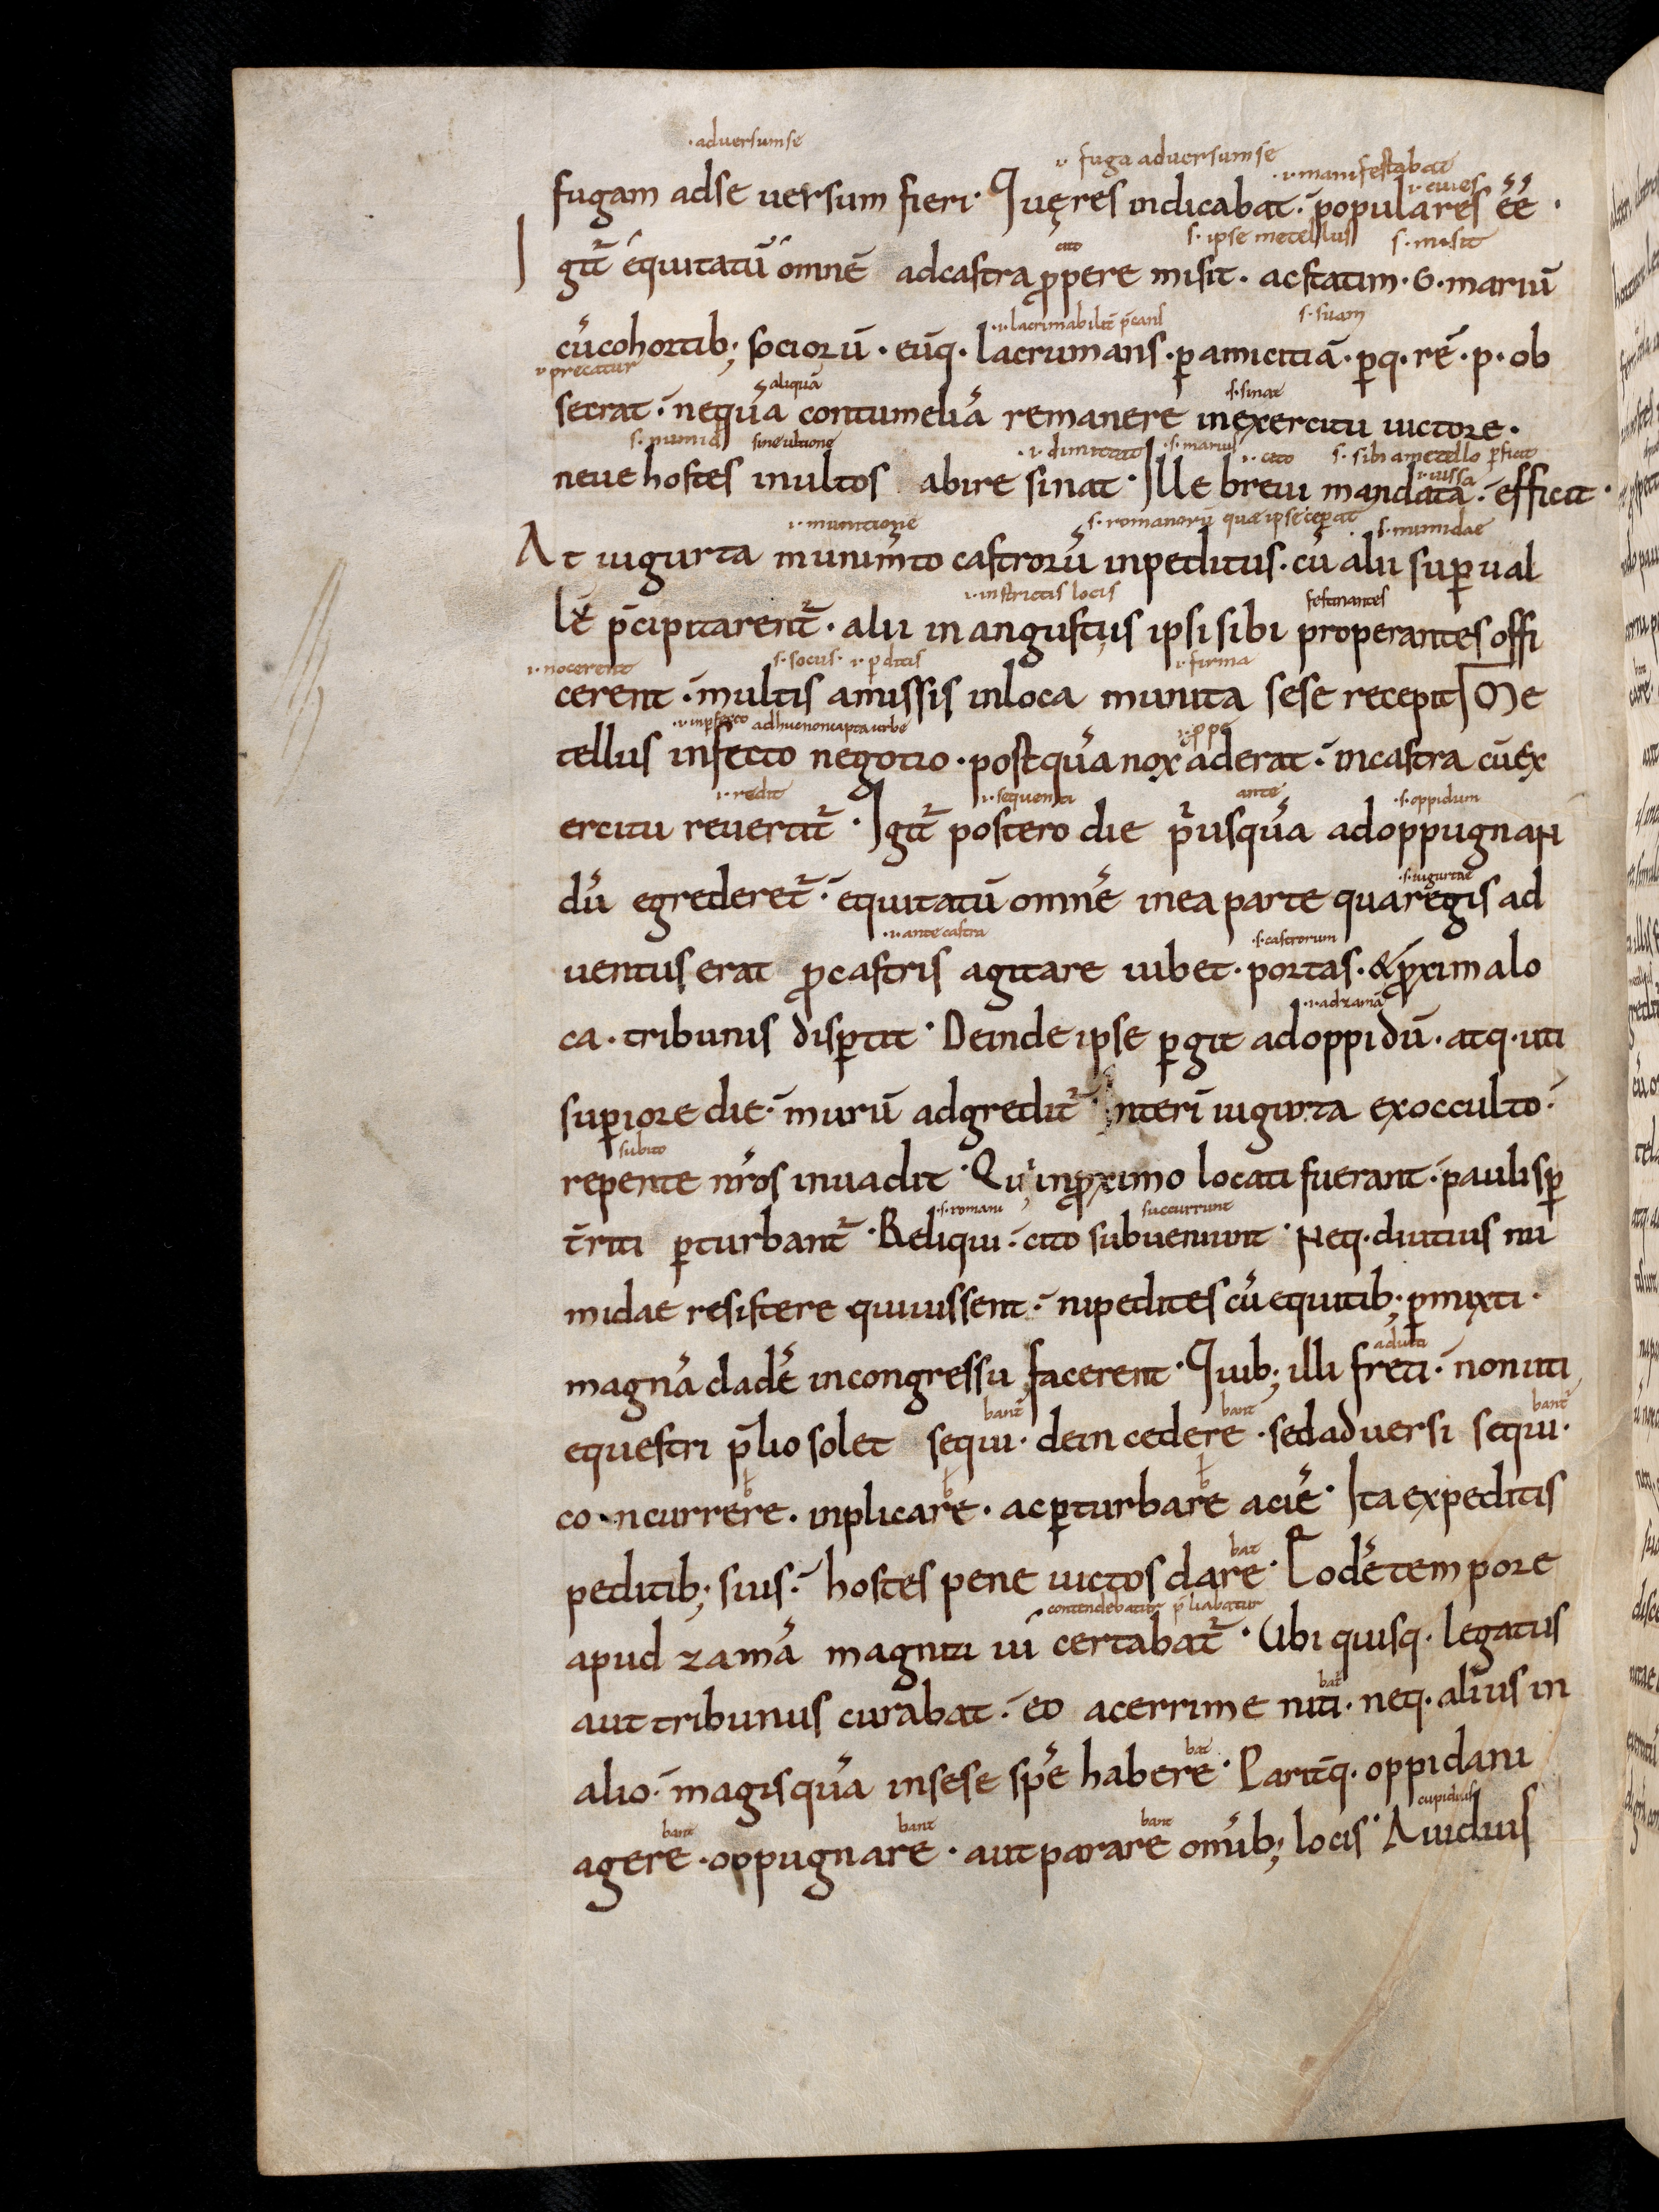 ·adversumse
.i. fuga adversumse ·i·manifestabat
.i. cives
fugam adse versum fieri· Quęres indicabat· populares éé·
cito s· ipse metellus s· misit
Igit̄ equitatū omnē adcastra ꝓpere misit· acstatim· G· mariū
·i·lacrimabilit̄ p̄cans s· suam
cūcohortib; sociorū· eūq· lacrumans· ꝑ amicitiā· ꝑq· rē· p· ob
.i. precatur aliquā s·sinat
secrat· nequā contumeliā remanere inexercitu victore·
s· numid sine ultione ·i· dimittat ·s· marius .i. cito s· sibi ametello ꝑficit
.i. iussa
neve hostes inultos abire sinat· Ille brevi mandata· efficit·
.i. munitione s· romanorū quae ipse ceperat s· numidae
At iugurta munimto castrorū inpeditus· cū alii suꝑ val
.i. instrictis locis festinantes
lū p̄cipitarent̄· alii in angustiis ipsi sibi properantes offi
.i. nocerent s· sociis· .i. ꝑditis .i. firma
cerent· multis amissis inloca munita sese recepit Me
·i· inꝑfecto adhuc non capta urbe .i. ꝓpe
tellus infecto negotio· postquā nox aderat· incastra cū ex
.i. redit .i. sequenti ante ·s·oppidum
ercitu revertit̄· Igit̄ postero die p̄usquā adoppugnan
·s·iugurtae
dū egrederet̄· equitatū omnē inea parte quaregis ad
·i· ante castra ·s·castrorum
ventus erat ꝓcastris agitare iubet· portas· &ꝓximalo
·i· adzamā
ca· tribunis disꝑtit· Deinde ipse ꝑgit adoppidū· atq· uti
suꝑiore die· murū adgredit̄· Interī iugurta exocculto·
subito
repente nr̄os invadit· Qui inꝓximo locati fuerant· paulisꝑ
·s·romani succurrunt
t̄riti ꝑturbant̄· Reliqui· cito subveniunt· Neq· diutius nu
midae resistere quivissent· nipedites cū equitib; ꝑmixti·
adiuti
magnā cladē incongressu facerent· Quib; illi freti· non uti
bant̄ bant bant̄
equestri p̄lio solet sequi· dein cedere· sedadversi sequi·
b b b
concurrere· inplicare· acꝑturbare aciē· Ita expeditis
bat
peditib; suis· hostes pene victos dare· Eodē tempore
contendebatur p̄liabatur
apud zamā magna vi certabat̄· Ubi quisq· legatus
bat̄
aut tribunus curabat· eo acerrime niti· neq· alius in
bat
alio· magisquā insese spē habere· Parit̄q· oppidani
bant bant bant cupidius
agere· oppugnare· aut parare omīb; locis· Avidius